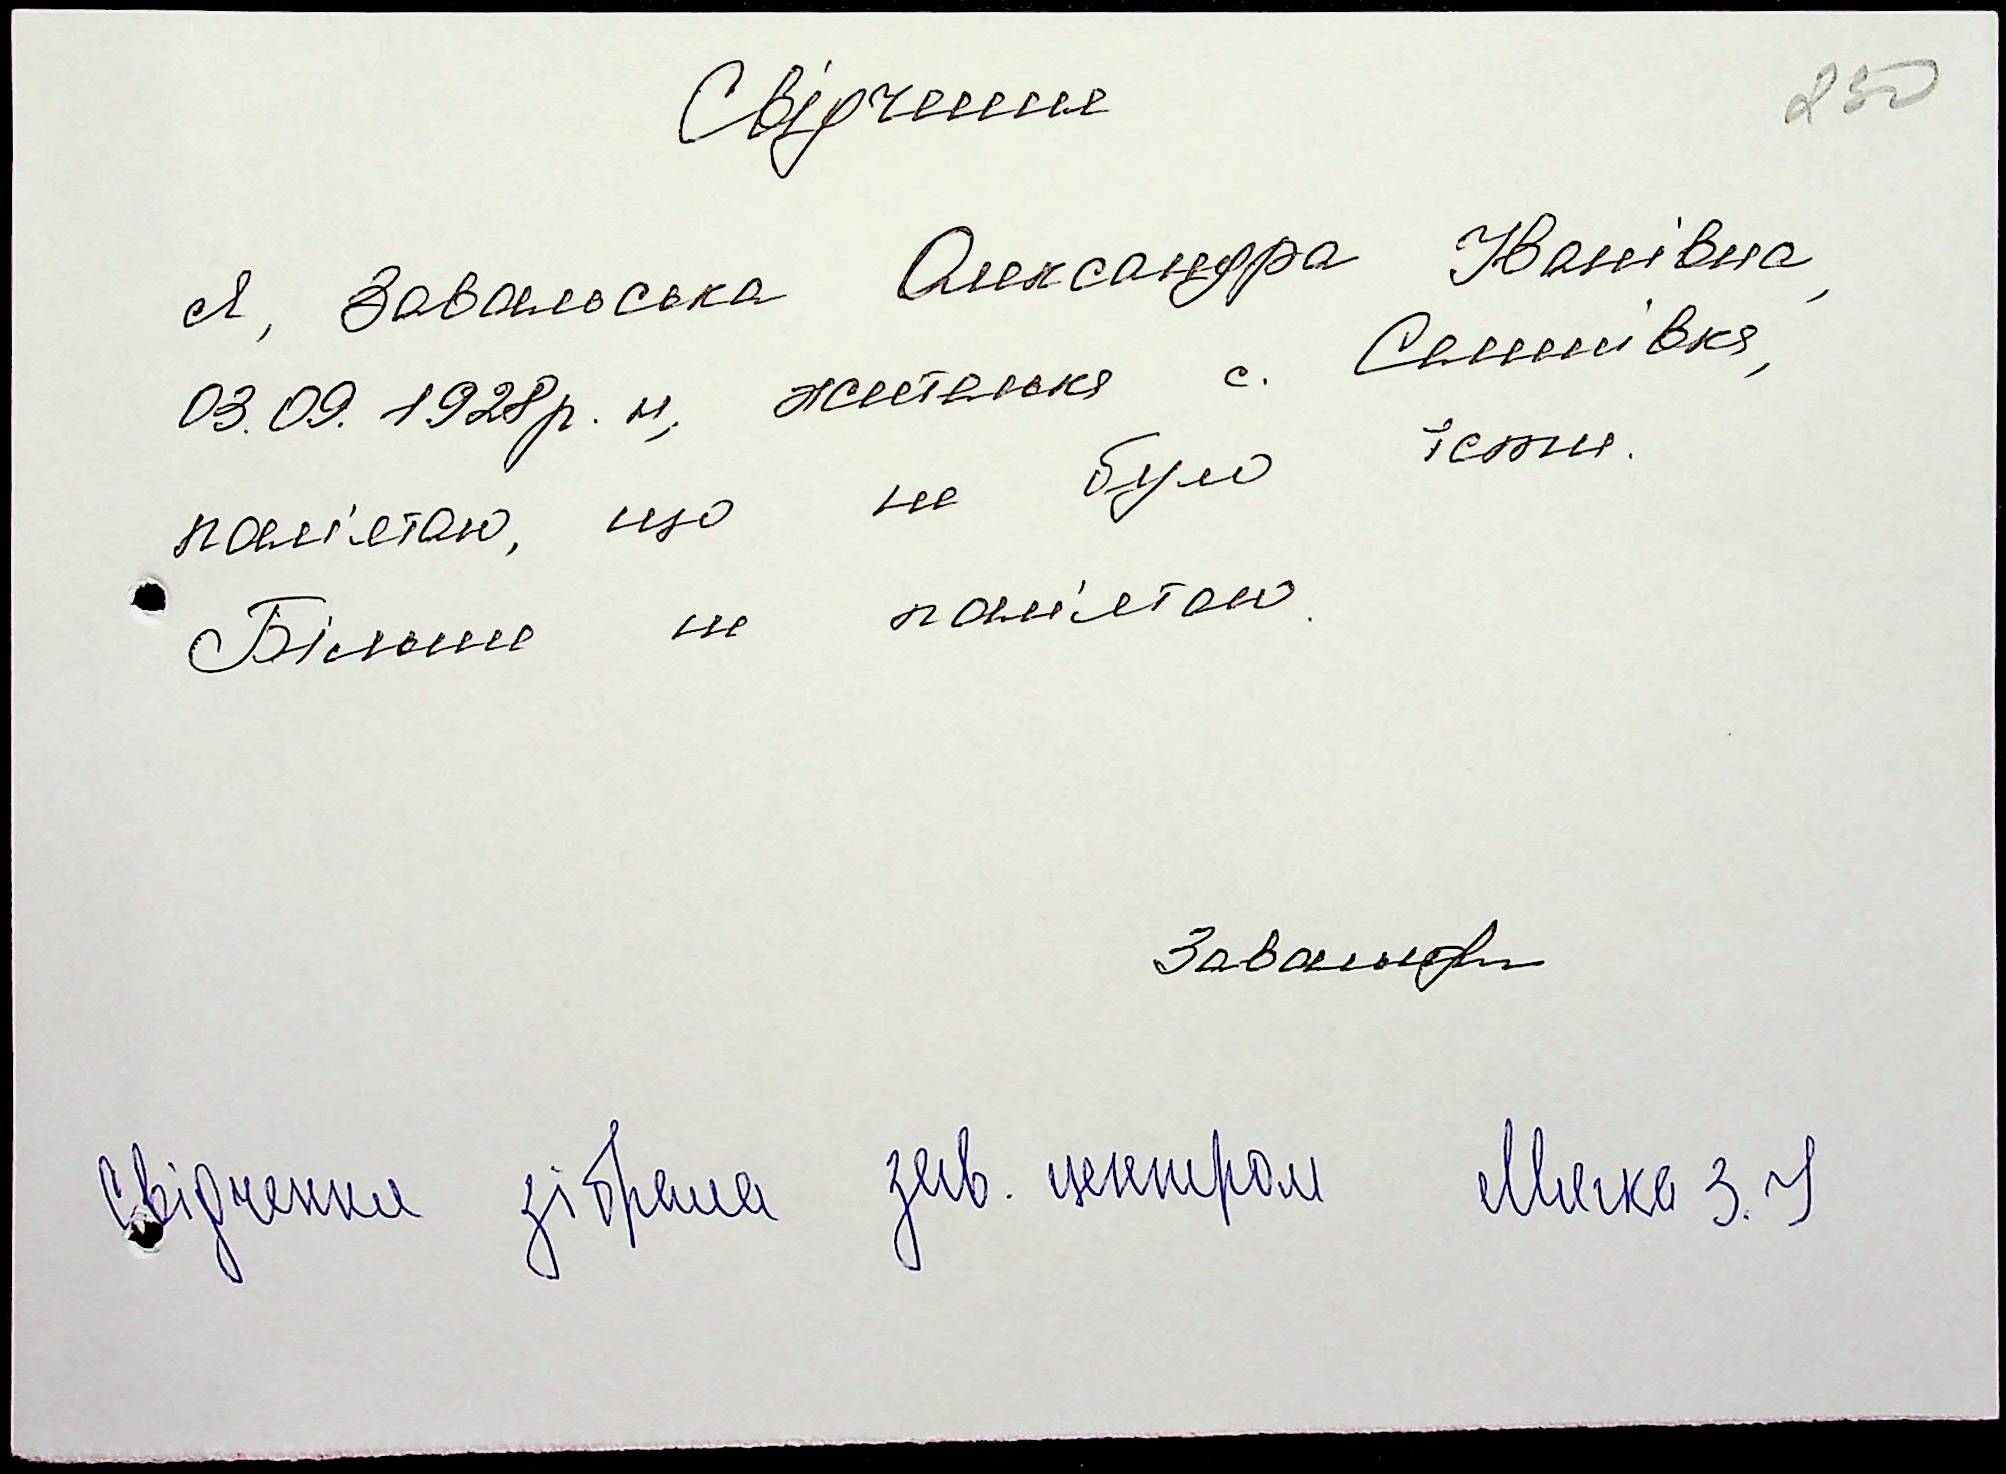 250
Свідчення
Я, Завальська Олександра Іванівна,
03.09.1928р. н, жителька с. Сеньківка,
пам'ятаю, що не було їсти.
Більше не пам'ятаю.
Свідчення зібрала зав. центром Мягка З. І